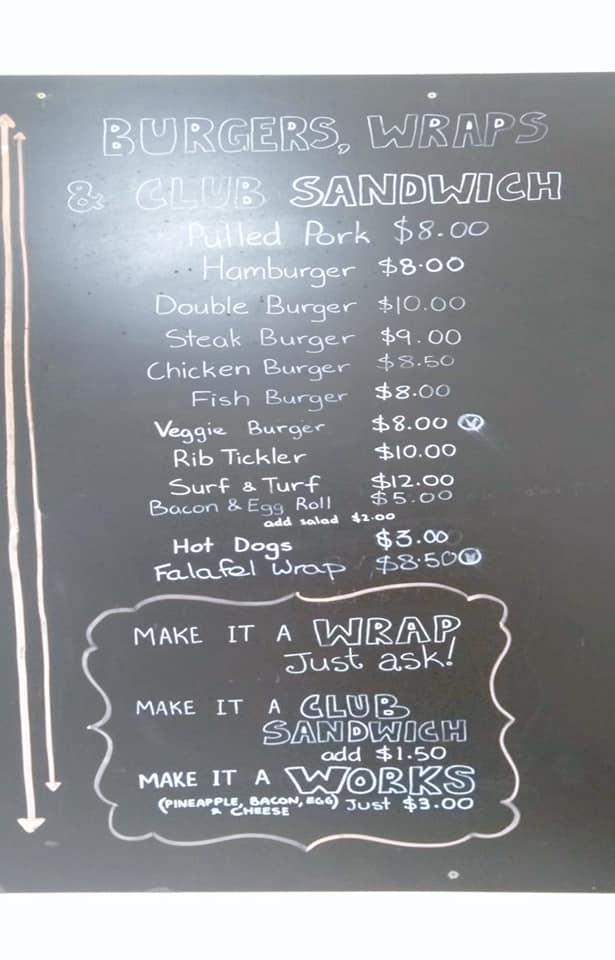 BURGERS, WRAPS
& CLUB SANDWICH
Pulled Pork $8.00
Hamburger $8.00
Double Burger $10.00
Steak Burger $9.00
Chicken Burger $8.50
Fish Burger $8.00
Veggie Burger $8.00 V
Rib Tickler $10.00
Surf & Turf $12.00
Bacon & Egg Roll $5.00
add salad $2.00
Hot Dogs $3.00
Falafel Wrap $8.50 V
MAKE IT A WRAP
Just ask!
MAKE IT A CLUB
SANDWICH
add $1.50
MAKE IT A WORKS
(PINEAPPLE, BACON, EGG) Just $3.00
& CHEESE